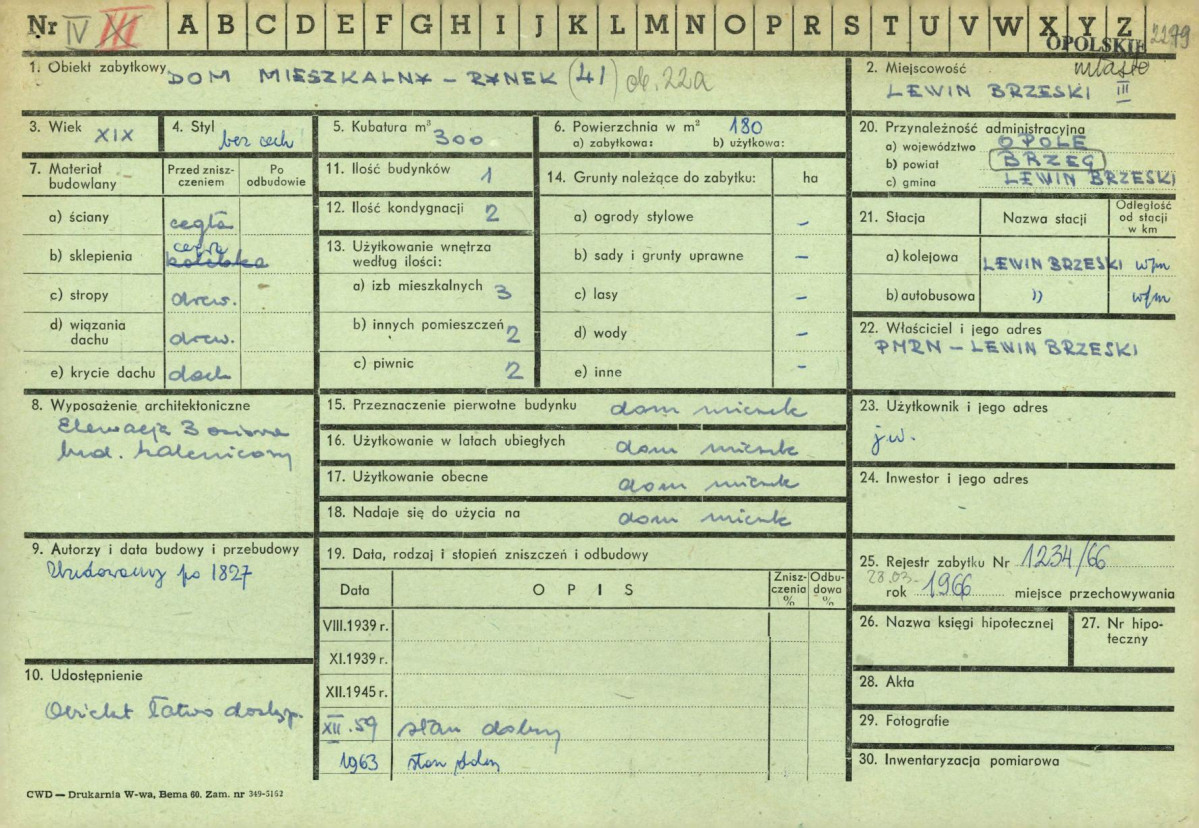 Nr IV III A B C D E F G H I J K L M N O P R S T U V W X Y Z 2279
OPOLSKIE
1. Obiekt zabytkowy DOM MIESZKALNY – RYNEK (41) ob. 22a
2. Miejscowość miasto
LEWIN BRZESKI III
3. Wiek XIX
4. Styl bez cech
5. Kubatura m³ 300
6. Powierzchnia w m² 180
a) zabytkowa: b) użytkowa:
7. Materiał budowlany
Przed zniszczeniem
Po odbudowie
a) ściany cegła
b) sklepienia cegła kolebka
c) stropy drew.
d) wiązania dachu drew.
e) krycie dachu dach
8. Wyposażenie architektoniczne
Elewacja 3 osiowa
bud. kalenicowy
9. Autorzy i data budowy i przebudowy
Zbudowany po 1827
10. Udostępnienie
Obiekt łatwo dostęp.
11. Ilość budynków 1
12. Ilość kondygnacji 2
13. Użytkowanie wnętrza według ilości:
a) izb mieszkalnych 3
b) innych pomieszczeń 2
c) piwnic 2
14. Grunty należące do zabytku: ha
a) ogrody stylowe –
b) sady i grunty uprawne –
c) lasy –
d) wody –
e) inne –
15. Przeznaczenie pierwotne budynku dom mieszk
16. Użytkowanie w latach ubiegłych dom mieszk
17. Użytkowanie obecne dom mieszk
18. Nadaje się do użycia na dom mieszk
19. Data, rodzaj i stopień zniszczeń i odbudowy
Data OPIS Zniszczenia % Odbudowa %
VIII.1939 r.
XI.1939 r.
XII.1945 r.
XII.59 stan dobry
1963 stan dobry
20. Przynależność administracyjna
a) województwo OPOLE
b) powiat BRZEG
c) gmina LEWIN BRZESKI
21. Stacja Nazwa stacji Odległość od stacji w km
a) kolejowa LEWIN BRZESKI w/m
b) autobusowa " w/m
22. Właściciel i jego adres
PMRN – LEWIN BRZESKI
23. Użytkownik i jego adres
j.w.
24. Inwestor i jego adres
-
25. Rejestr zabytku Nr 1234/66
28.03.
rok 1966 miejsce przechowywania
26. Nazwa księgi hipotecznej
27. Nr hipoteczny
28. Akta
29. Fotografie
30. Inwentaryzacja pomiarowa
CWD — Drukarnia W-wa, Bema 60. Zam. nr 349-5162